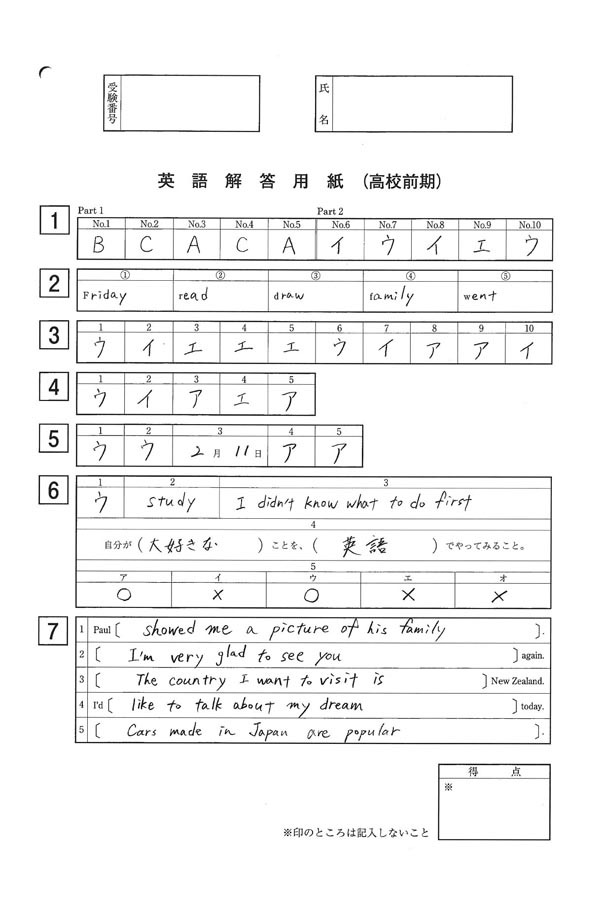 受験番号
氏名
英語解答用紙 (高校前期)
1
Part 1 Part 2
No.1 No.2 No.3 No.4 No.5 No.6 No.7 No.8 No.9 No.10
B C A C A イ ウ イ エ ウ
2
① ② ③ ④ ⑤
Friday read draw family went
3
1 2 3 4 5 6 7 8 9 10
ウ イ エ エ エ ウ イ ア ア イ
4
1 2 3 4 5
ウ イ ア エ ア
5
1 2 3 4 5
ウ ウ 2月11日 ア ア
6
1 2 3
ウ study I didn't know what to do first
4
自分が(大好きな)ことを、(英語)でやってみること。
5
ア イ ウ エ オ
○ × ○ × ×
7
1 Paul [ showed me a picture of his family ].
2 [ I'm very glad to see you ] again.
3 [ The country I want to visit is ] New Zealand.
4 I'd [ like to talk about my dream ] today.
5 [ Cars made in Japan are popular ].
得点
※
※印のところは記入しないこと